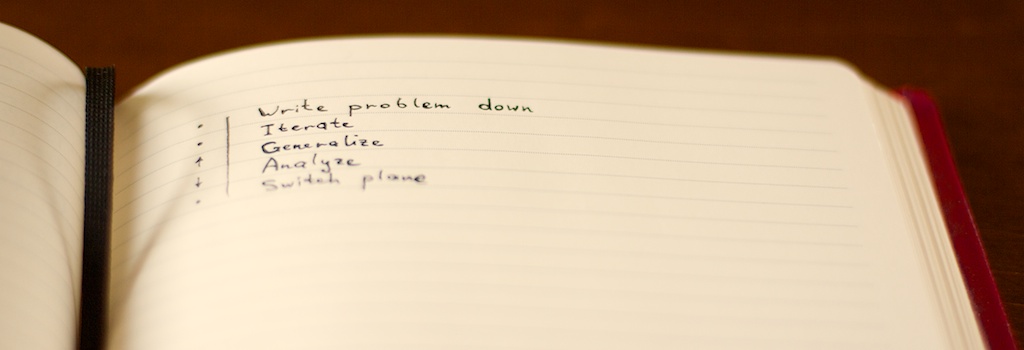 Write problem down
Iterate
Generalize
Analyze
Switch plane